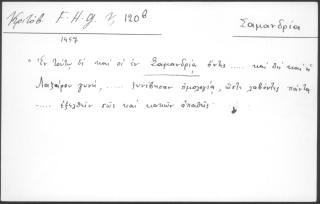 Κριτόβ. F.H.G. V, 120ᵇ
Σαμανδρία
1457
"Ἐν τούτῳ δὲ καὶ οἱ ἐν Σαμανδρίᾳ ὄντες ..... καὶ δὴ καὶ ἡ
Λαζάρου γυνή, ...... ξυνέβησαν ὁμολογίᾳ, ὥστε λαβόντες πάντα
..... ἐξελθεῖν σῶς καὶ κακῶν ἀπαθεῖς